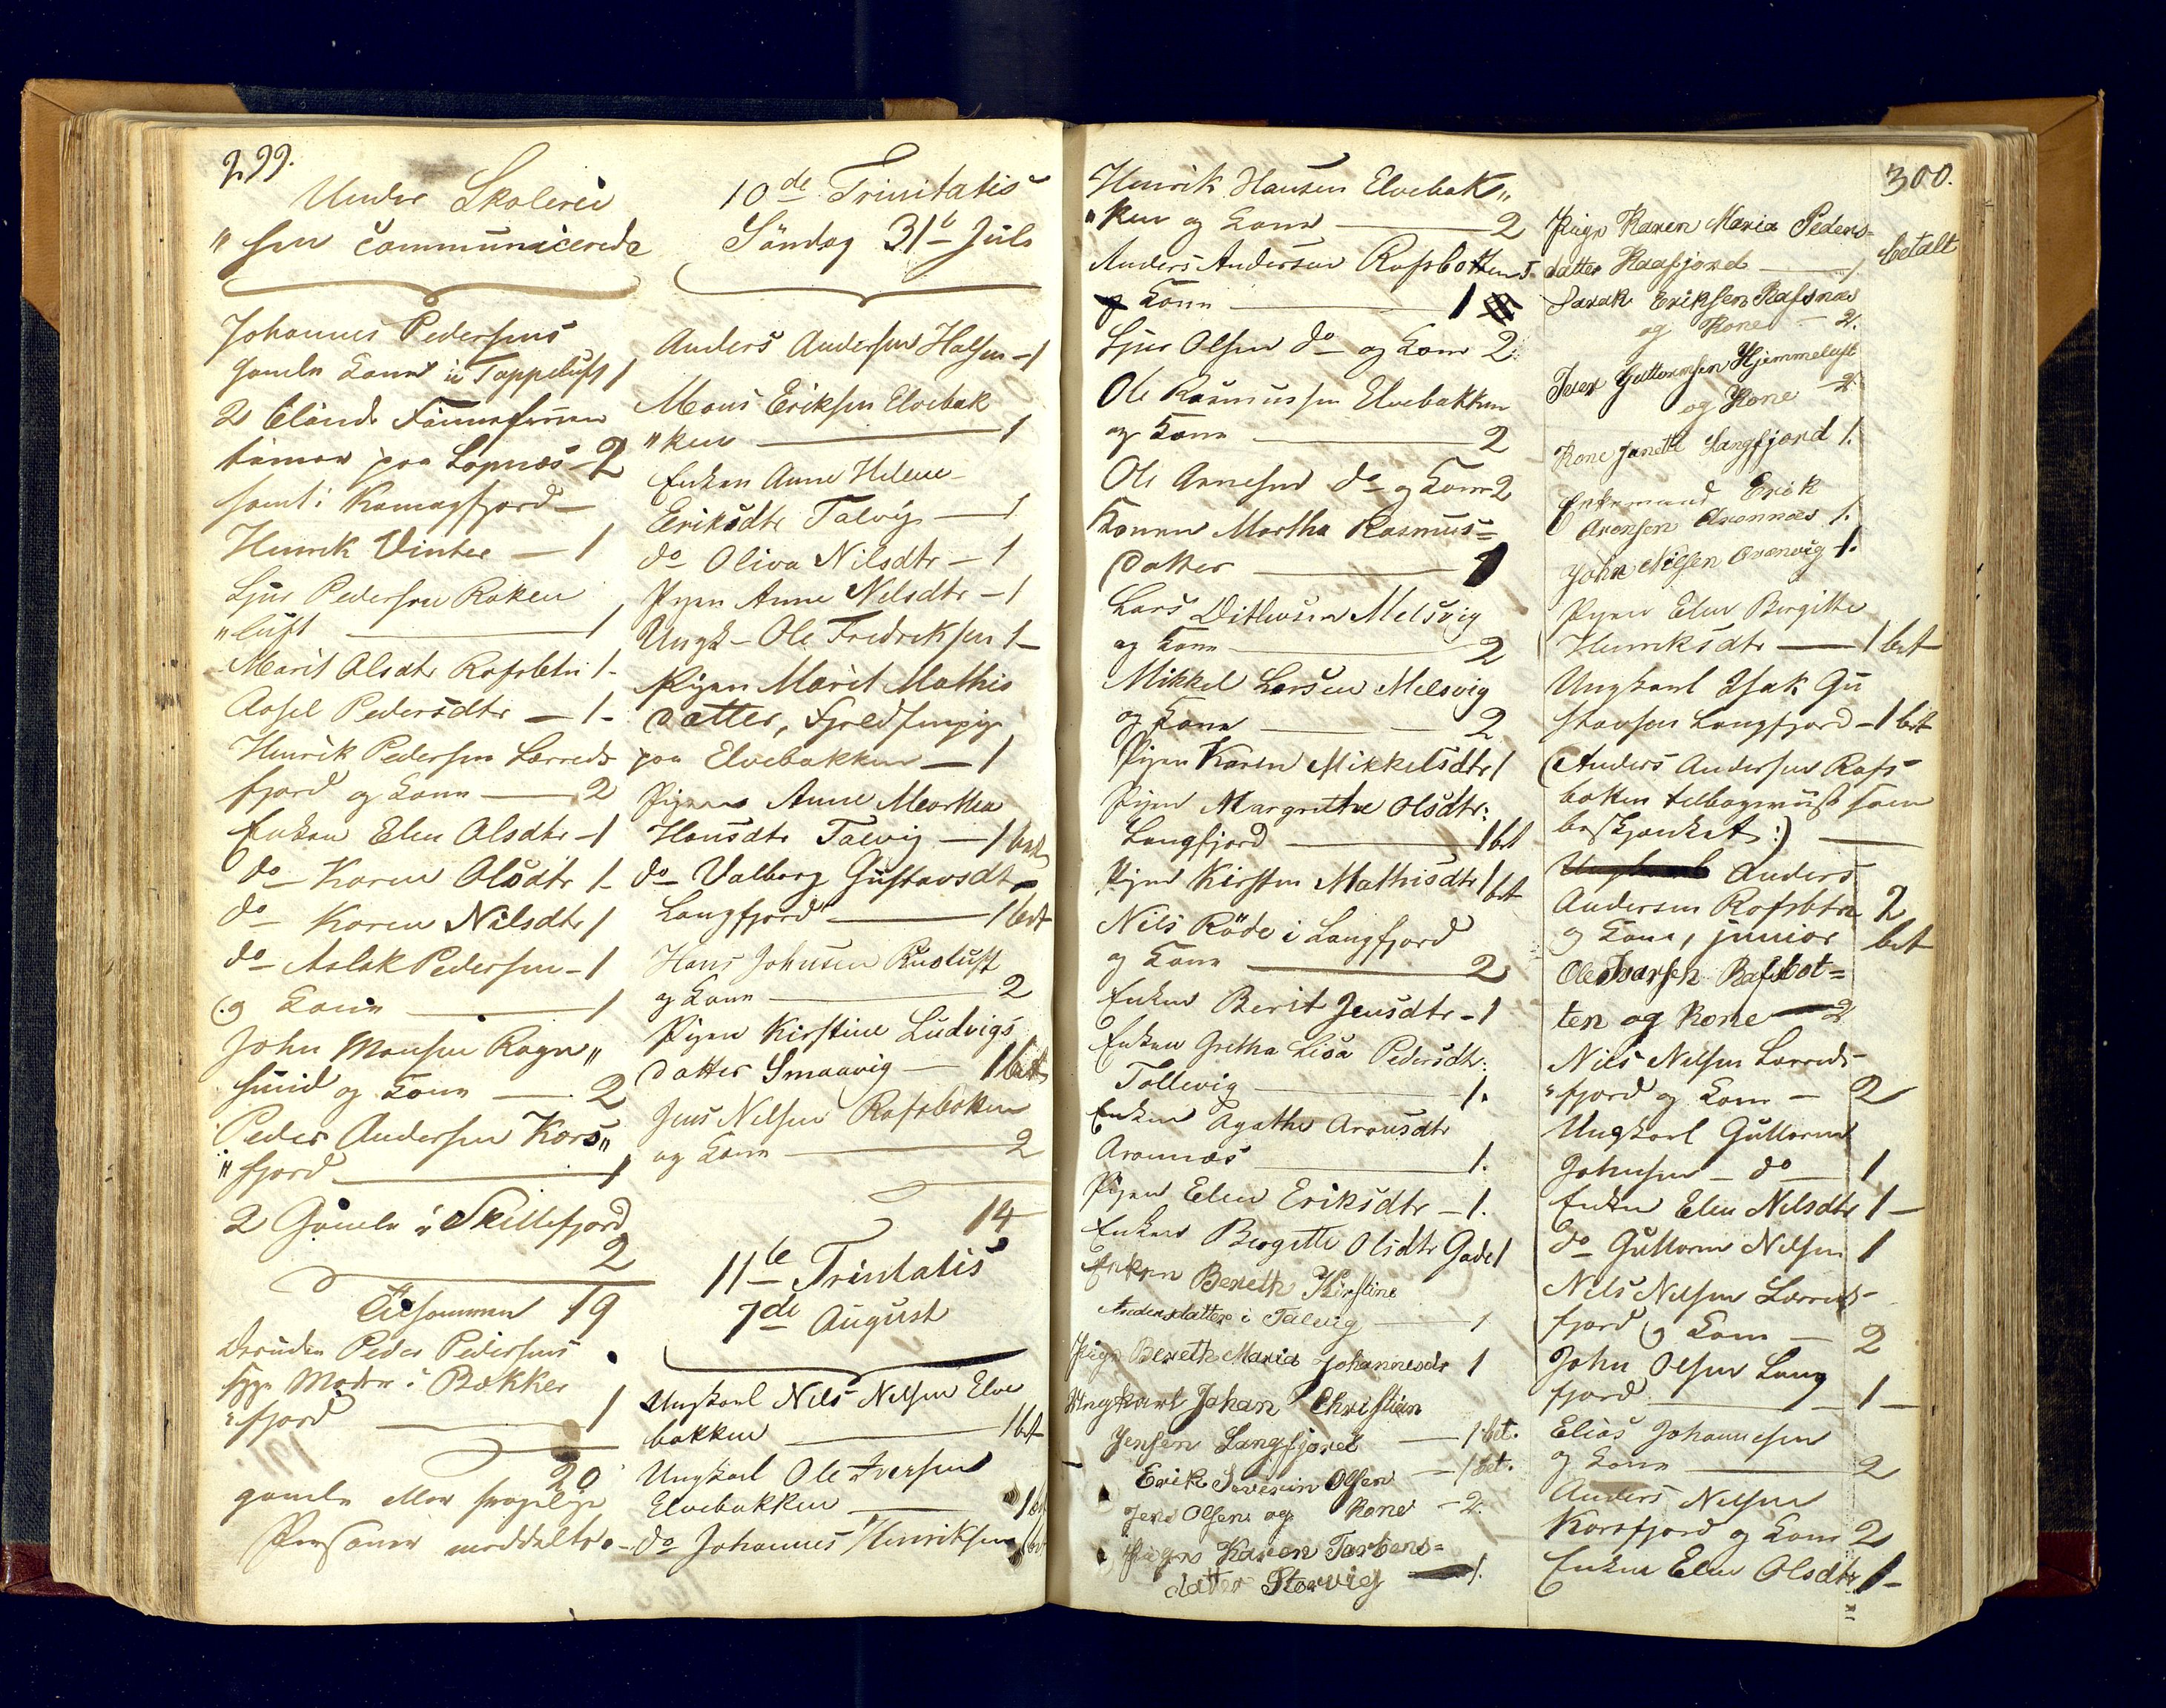 299.
Under Skolerei
"sen communicerede
Johannes Pedersens
gamle Kone i Toppeluft 1
2 blinde Finnefruen
timer paa Lopnæs - 2
samt i Komagfjord -
Henrik Vinter - 1
Sjur Pedersen Raken
"luft - 1
Marit Olsdtr Rafsbtn 1-
Aasel Pedersdtr - 1-
Henrik Pedersen Lerreds
fjord og Kone - 2
Enken Elen Olsdtr - 1
do Karen Olsdtr 1-
do Karen Nilsdtr 1
do Aslak Pedersen - 1
og Kone - 1
John Monsen Rogn"
sund og Kone - 2
Peder Andersen Kors"
"fjord - 1
2 Gamle i Skillefjord
2
Tilsammen 19
Peder Pedersens
syge Moder i Bekker
"fjord - 1
20
gamle eller svagelige
Personer meddelte.-
10de Trinitatis
Söndag 31te Juli
Anders Andersen Halsen - 1
Mons Eriksen Elvebak
"ken - 1
Enken Anne Helene
Eriksdtr Talvig - 1
do Oliva Nilsdtr - 1
Pigen Anne Nilsdtr - 1
Ungk- Ole Fredriksen 1-
Pigen Marit Mathis
datter, Fjeldfinpige
paa Elvebakken - 1
Pigen Anne Martha
Hansdtr Talvig - 1 bet
do Valborg Gustavsdtr
Langfjord - 1 bet
Hans Johnsen Rusluft
og Kone - 2
Pigen Kirstine Ludvigs
datter Smaavig - 1 bet
Jens Nilsen Rafsbotten
og Kone - 2
14
11te Trinitatis
7de August
Ungkarl Nils Nilsen Elve
bakken - 1 bet
Ungkarl Ole Iversen
Elvebakken - 1 bet
do Johannes Henriksen 1 bet
300.
Henrik Hansen Elvebak"
"ken og Kone - 2
Anders Andersen Rafsbotten S.
og Kone - 1
Sjur Olsen do og Kone 2
Ole Rasmussen Elvebakken
og Kone - 2
Ole Arnesen do og Kone 2
Konen Martha Rasmus=
datter - 1
Lars Ditlevsen Melsvig
og Kone - 2
Mikkel Larsen Melsvig
og Kone - 2
Pigen Karen Mikkelsdtr 1
Pigen Margrethe Olsdtr:
Langfjord - 1 bet
Pigen Kirsten Mathisdtr 1 bet
Nils Röde i Langfjord
og Kone - 2
Enken Berit Jensdtr - 1
Enken Gretha Lisa Pedersdtr:
Tollevig - 1.
Enken Agathe Aronsdtr
Aronnæs - 1.
Pigen Elen Eriksdtr - 1.
Enken Birgitte Olsdtr Gade 1
Enken Bereth Kirstine
Andersdatter i Talvig - 1
Pige Bereth Maria Johannesdr 1
Ungkarl Johan Christian
Jensen Langfjord - 1 bet.
Erik Severin Olsen - 1 bet.
Jens Olsen og Kone - 2.
Pigen Karen Torbens=
datter Storvig - 1.
Pige Karen Maria Peders=
datter Kaafjord - 1 betalt
Isaak Eriksen Rafsnæs
og Kone - 2.
Iver Guttormsen Hjemmeluft
og Kone - 2
Kone Janeth Langfjord 1.
Enkemand Erik
Aronsen Aronnæs 1.
John Nilsen Aronvig - 1.
Pigen Elen Birgitte
Henriksdtr - 1 bet
Ungkarl Isak Gu
stavsen Langfjord - 1 bet
(Anders Andersen Rafs
botten tilbageviist som
beskjænket:) -
Anders
Andersen Rafsbtn 2
og Kone, junior bet
Ole Ivarsen Rafsbot=
ten og Kone - 2
Nils Nilsen Lerreds-
"fjord og Kone - 2
Ungkarl Guttorm
Johnsen - do - 1
Enken Elen Nilsdtr 1 -
do Guttorm Nilsen 1
Nils Nilsen Lerreds-
fjord og Kone - 2
John Olsen Lang
fjord - 1 -
Elias Johannesen
og Kone - 2
Anders Nilsen
Korsfjord og Kone 2
Enken Elen Olsdtr 1 -